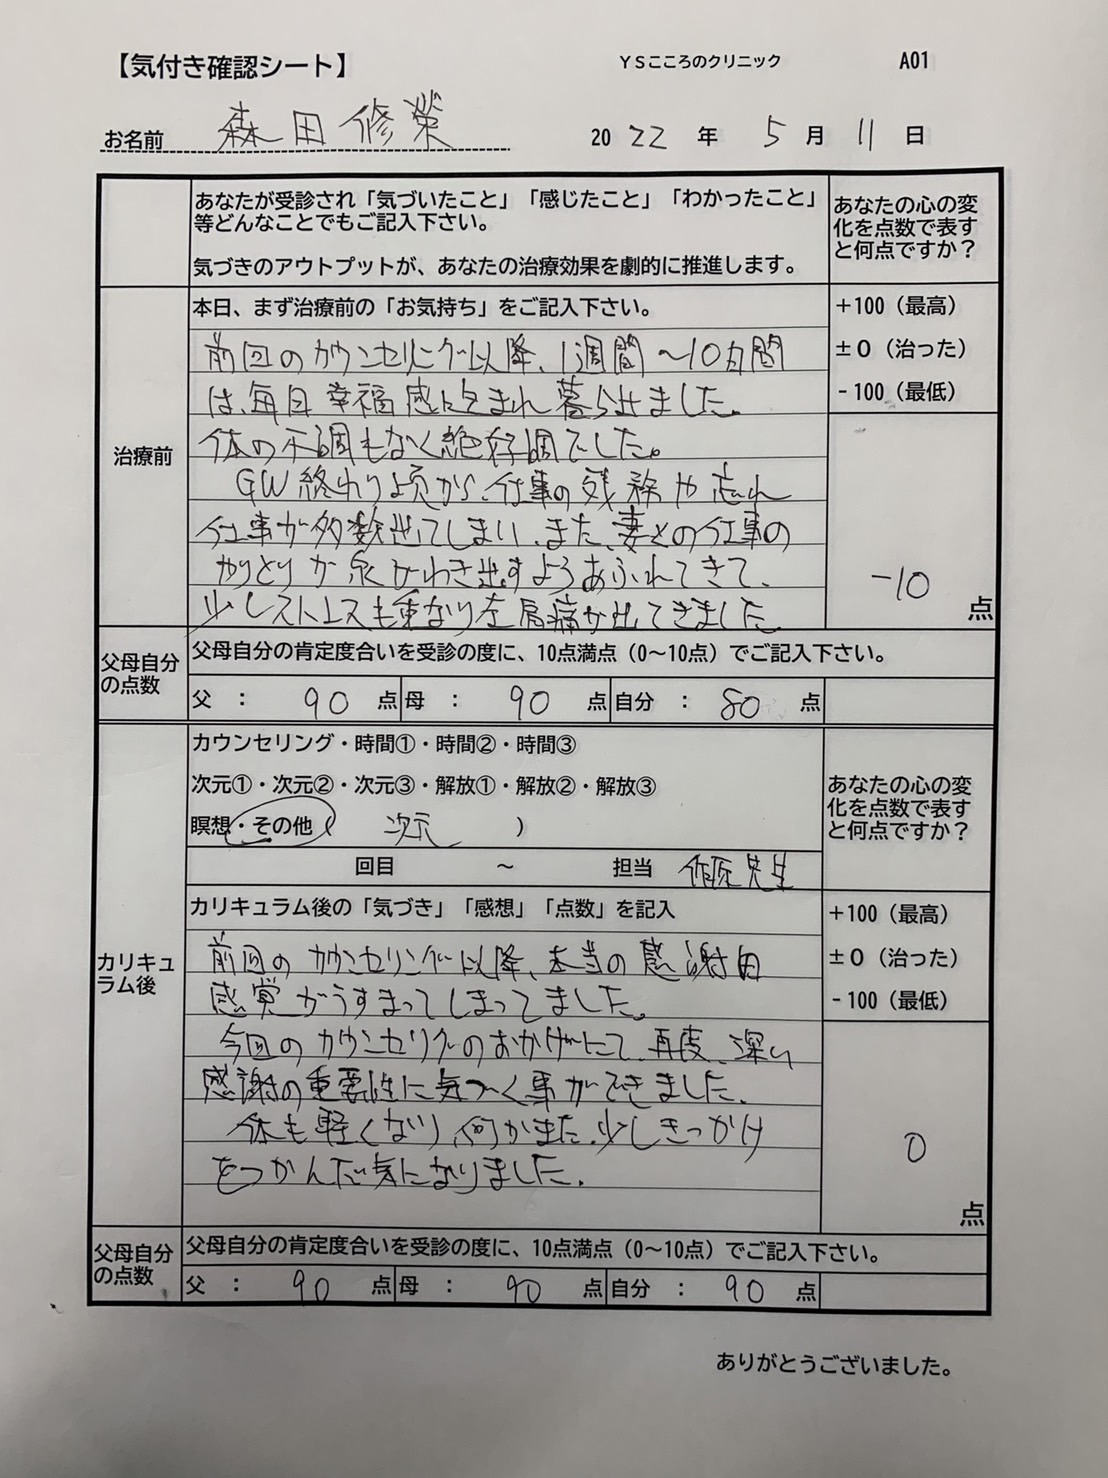 【気付き確認シート】 YSこころのクリニック A01
お名前 森田修榮 2022年5月11日
あなたが受診され「気づいたこと」「感じたこと」「わかったこと」
等どんなことでもご記入下さい。
気づきのアウトプットが、あなたの治療効果を劇的に推進します。
あなたの心の変
化を点数で表す
と何点ですか？
治療前
本日、まず治療前の「お気持ち」をご記入下さい。
前回のカウンセリング以降、1週間～10日間
は、毎日幸福感に包まれ暮ら出ました。
体の不調もなく絶好調でした。
GW終わり頃から、仕事の残務や忘れ
仕事が多数出てしまい、また、妻との仕事の
やりとりが泉がわき出すようあふれてきて、
少しストレスも重なり左肩痛が出てきました。
+100（最高）
±0（治った）
-100（最低）
-10点
父母自分
の点数
父母自分の肯定度合いを受診の度に、10点満点（0～10点）でご記入下さい。
父：90点 母：90点 自分：80点
カリキュ
ラム後
カウンセリング・時間①・時間②・時間③
次元①・次元②・次元③・解放①・解放②・解放③
瞑想・その他（ 次元 ）
回目 ～ 担当 先生
あなたの心の変
化を点数で表す
と何点ですか？
カリキュラム後の「気づき」「感想」「点数」を記入
前回のカウンセリング以降、本当の感謝
感覚がうすまってしまってました。
今回のカウンセリグのおかげにて、再度、深い
感謝の重要性に気づく事ができました。
体も軽くなり、何かまた、少しきっかけ
をつかんだ気になりました。
+100（最高）
±0（治った）
-100（最低）
0点
父母自分
の点数
父母自分の肯定度合いを受診の度に、10点満点（0～10点）でご記入下さい。
父：90点 母：90点 自分：90点
ありがとうございました。